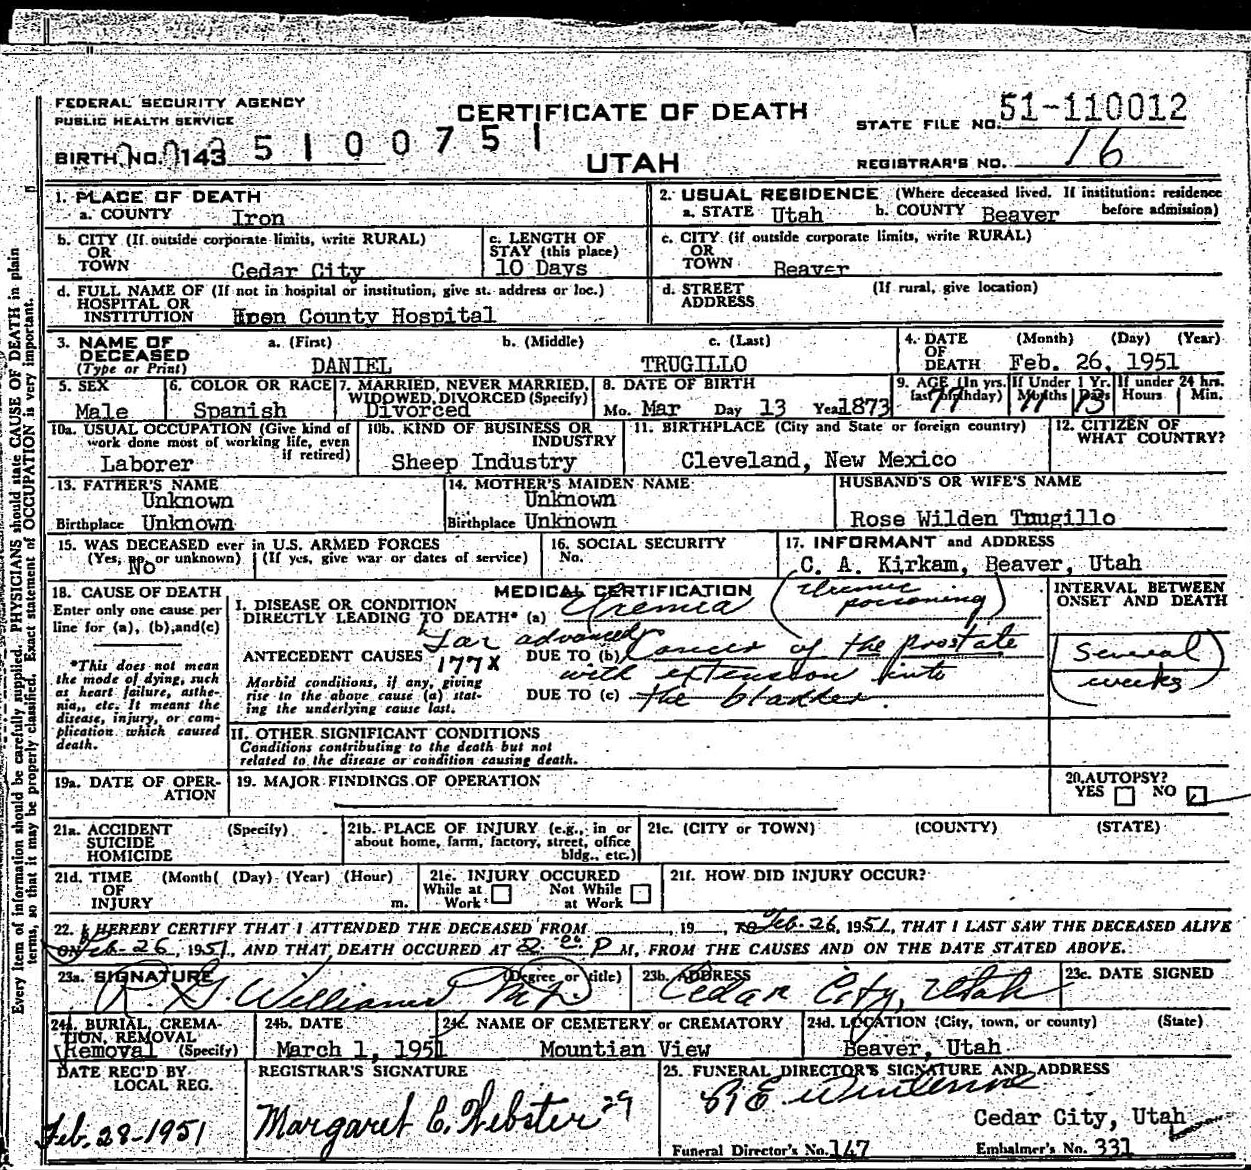 FEDERAL SECURITY AGENCY
PUBLIC HEALTH SERVICE
CERTIFICATE OF DEATH
UTAH
STATE FILE NO. 51-110012
BIRTH NO. 143 5100751
REGISTRAR'S NO. 16
Every item of information should be carefully supplied. PHYSICIANS should state CAUSE OF DEATH in plain
terms, so that it may be properly classified. Exact statement of OCCUPATION is very important.
1. PLACE OF DEATH
a. COUNTY Iron
2. USUAL RESIDENCE (Where deceased lived. If institution: residence
a. STATE Utah b. COUNTY Beaver before admission)
b. CITY (If outside corporate limits, write RURAL)
OR
TOWN Cedar City
c. LENGTH OF
STAY (this place)
10 Days
c. CITY (if outside corporate limits, write RURAL)
OR
TOWN Beaver
d. FULL NAME OF (If not in hospital or institution, give st. address or loc.)
HOSPITAL OR
INSTITUTION Iron County Hospital
d. STREET (If rural, give location)
ADDRESS
3. NAME OF a. (First) b. (Middle) c. (Last)
DECEASED
(Type or Print) DANIEL TRUGILLO
4. DATE (Month) (Day) (Year)
OF
DEATH Feb. 26, 1951
5. SEX
Male
6. COLOR OR RACE
Spanish
7. MARRIED, NEVER MARRIED,
WIDOWED, DIVORCED (Specify)
Divorced
8. DATE OF BIRTH
Mo. Mar Day 13 Year 1873
9. AGE (In yrs.
last birthday)
77
If Under 1 Yr.
Months Days
11 13
If under 24 hrs.
Hours Min.
10a. USUAL OCCUPATION (Give kind of
work done most of working life, even
if retired)
Laborer
10b. KIND OF BUSINESS OR
INDUSTRY
Sheep Industry
11. BIRTHPLACE (City and State or foreign country)
Cleveland, New Mexico
12. CITIZEN OF
WHAT COUNTRY?
13. FATHER'S NAME
Unknown
Birthplace Unknown
14. MOTHER'S MAIDEN NAME
Unknown
Birthplace Unknown
HUSBAND'S OR WIFE'S NAME
Rose Wilden Trugillo
15. WAS DECEASED ever in U.S. ARMED FORCES
(Yes, no or unknown) (If yes, give war or dates of service)
No
16. SOCIAL SECURITY
No.
17. INFORMANT and ADDRESS
C. A. Kirkam, Beaver, Utah
18. CAUSE OF DEATH
Enter only one cause per
line for (a), (b), and (c)
*This does not mean
the mode of dying, such
as heart failure, asthe-
nia,, etc. It means the
disease, injury, or com-
plication which caused
death.
MEDICAL CERTIFICATION
I. DISEASE OR CONDITION
DIRECTLY LEADING TO DEATH* (a) Uremia (Uremic poisoning)
Far advanced
ANTECEDENT CAUSES 177X DUE TO (b) Cancer of the prostate
Morbid conditions, if any, giving with extension into
rise to the above cause (a) stat- DUE TO (c) the bladder.
ing the underlying cause last.
INTERVAL BETWEEN
ONSET AND DEATH
(Several
weeks)
II. OTHER SIGNIFICANT CONDITIONS
Conditions contributing to the death but not
related to the disease or condition causing death.
19a. DATE OF OPER-
ATION
19. MAJOR FINDINGS OF OPERATION
20. AUTOPSY?
YES NO
21a. ACCIDENT (Specify)
SUICIDE
HOMICIDE
21b. PLACE OF INJURY (e.g., in or
about home, farm, factory, street, office
bldg., etc.)
21c. (CITY or TOWN) (COUNTY) (STATE)
21d. TIME (Month( (Day) (Year) (Hour)
OF
INJURY m.
21e. INJURY OCCURED
While at Not While
Work at Work
21f. HOW DID INJURY OCCUR?
22. I HEREBY CERTIFY THAT I ATTENDED THE DECEASED FROM , 19 TO Feb. 26, 1951, THAT I LAST SAW THE DECEASED ALIVE
ON Feb-26, 1951, AND THAT DEATH OCCURED AT 2:00 P M, FROM THE CAUSES AND ON THE DATE STATED ABOVE.
23a. SIGNATURE (Degree or title)
R. G. Williams M.D.
23b. ADDRESS
Cedar City, Utah
23c. DATE SIGNED
24a. BURIAL, CREMA-
TION, REMOVAL
Removal (Specify)
24b. DATE
March 1, 1951
24c. NAME OF CEMETERY or CREMATORY
Mountian View
24d. LOCATION (City, town, or county) (State)
Beaver, Utah
DATE REC'D BY
LOCAL REG.
Feb. 28-1951
REGISTRAR'S SIGNATURE
Margaret E. Webster 29
25. FUNERAL DIRECTOR'S SIGNATURE AND ADDRESS
Cedar City, Utah
Funeral Director's No. 147 Embalmer's No. 331